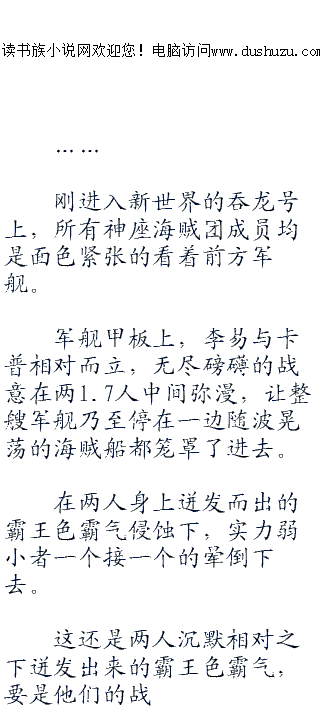 读书族小说网欢迎您！电脑访问www.dushuzu.com
……
刚进入新世界的吞龙号
上，所有神座海贼团成员均
是面色紧张的看着前方军
舰。
军舰甲板上，李易与卡
普相对而立，无尽磅礴的战
意在两1.7人中间弥漫，让整
艘军舰乃至停在一边随波晃
荡的海贼船都笼罩了进去。
在两人身上迸发而出的
霸王色霸气侵蚀下，实力弱
小者一个接一个的晕倒下
去。
这还是两人沉默相对之
下迸发出来的霸王色霸气，
要是他们的战